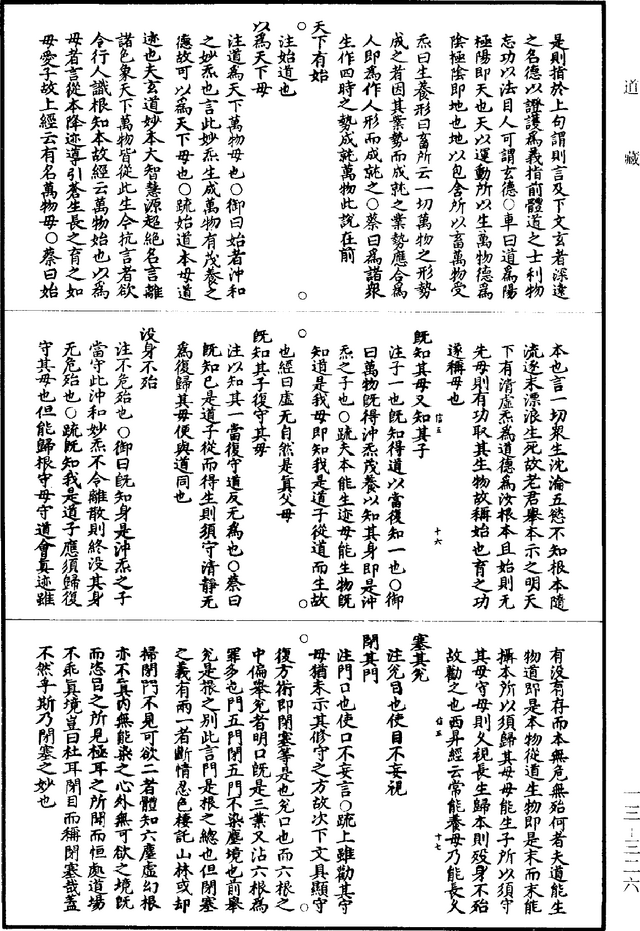 道藏
是則指於上句謂則言及下文玄者深遠
之名德以證護為義指前體道之士利物
忘功以法目人可謂玄德○車曰道為陽
極陽即天也天以運動所以生萬物德為
陰極陰即地也地以包含所以畜萬物受
炁曰生養形曰畜所云一切萬物之形勢
成之者因其業勢而成就之業勢應合為
人即為作人形而成就之○蔡曰為諸眾
生作四時之勢成就萬物此說在前
天下有始
注始道也
以為天下母
注道為天下萬物母也○御曰始者沖和
之妙炁也言此妙炁生成萬物有茂養之
德故可以為天下母也○疏始道本母道
迹也夫玄道妙本大智慧源超絕名言離
諸色象天下萬物皆從此生今抗言者欲
令行人識根知本故經云萬物始也以為
母者言從本降迹導引蒼生長之育之如
母愛子故上經云有名萬物母○蔡曰始
本也言一切眾生沈淪五慾不知根本隨
流逐末漂浪生死故老君舉本示之明天
下有清虛炁為道德為汝根本且始則无
先母則有功取其生物故稱始也育之功
遂稱母也
既知其母又知其子
注子一也既知得道以當復知一也○御
曰萬物既得沖炁茂養以知其身即是沖
炁之子也○疏夫本能生迹母能生物既
知道是我母即知我是道子從道而生故
也經曰虛无自然是真父母
既知其子復守其母
注以知其一當復守道反无為也○蔡曰
既知已是道子從而得生則須守清靜无
為復歸其母便與道同也
沒身不殆
注不危殆也○御曰既知身是沖炁之子
當守此沖和妙炁不令離散則終沒其身
无危殆也○疏既知我是道子應須歸復
守其母也但能歸根守母守道會真迹雖
信五
十六
有沒有存而本無危無殆何者夫道能生
物道即是本物從道生物即是末而末能
攝本所以須歸其母母能生子所以須守
其母守母則久視長生歸本則歿身不殆
故勸之也西昇經云常能養母乃能長久
塞其兌
注兌目也使目不妄視
閉其門
注門口也使口不妄言○疏上雖勸其守
母猶未示其修守之方故次下文具顯守
復方術即閉塞等是也兌口也而六根之
中偏舉兌者明口既是三業又沾六根為
罪多也門五門閉五門不染塵境也前舉
兌是根之別此言門是根之總也但閉塞
之義有兩一者斷情忍色棲託山林或却
掃閉門不見可欲二者體知六塵虛幻根
亦不真內無能染之心外無可欲之境既
而恣目之所見極耳之所聞而恒處道場
不乖真境豈曰杜耳閉目而稱閉塞哉蓋
不然乎斯乃閉塞之妙也
信五
十七
一三-三二六